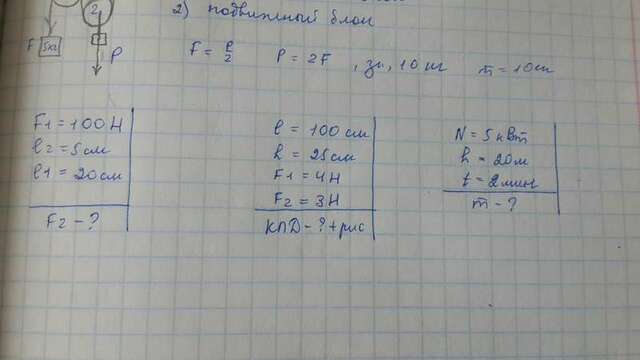 2
2) подвижный блок
F
5кг
P
F = P/2 P = 2F , зн, 10 кг m = 10кг
F1 = 100 Н
l2 = 5см
l1 = 20см
F2 - ?
l = 100см
h = 25см
F1 = 4Н
F2 = 3Н
КПД - ? + рис
N = 5 кВт
h = 20м
t = 2мин
m - ?